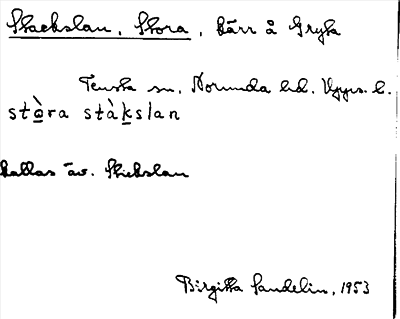 Stackslan, Stora, kärr å Gryta
Tensta sn, Norunda hd. Upps. l.
stòra stàkslan
kallas äv. Stickslan
Birgitta Sandelin, 1953